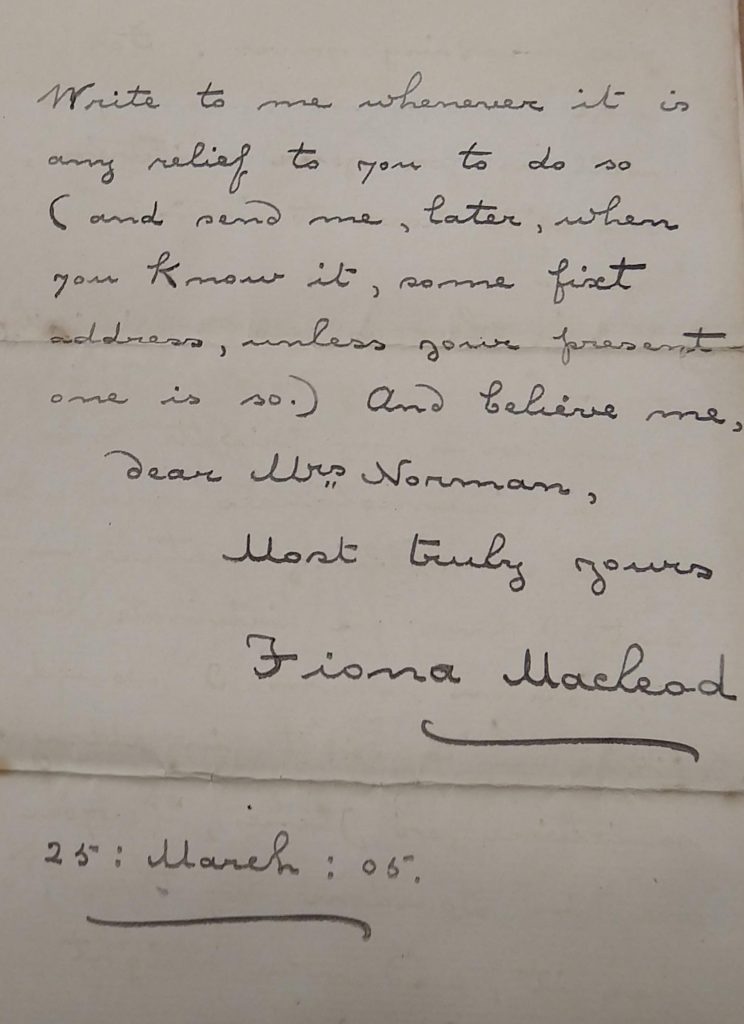 Write to me whenever it is
any relief to you to do so
(and send me, later, when
you know it, some fixt
address, unless your present
one is so.) And believe me,
dear Mrs. Norman,
Most truly yours
Fiona Macleod
25 : March : 05.